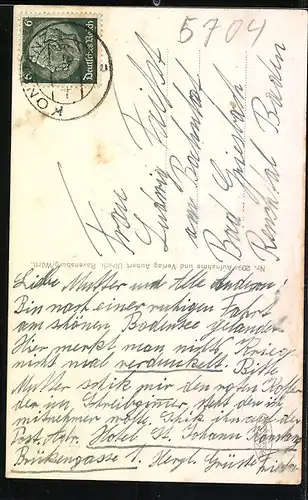 5704
6
Deutsches Reich
KON
Frau
Ludwig
am Bahnhof
Bad Griesbach
Renchtal Baden
Nr. 209 Aufnahme und Verlag August Ulrich, Ravensburg/Württ.
Liebe Mutter und alle andern!
Bin nach einer ruhigen Fahrt
am schönen Bodensee gelandet.
Hier merkt man nichts Krieg
nicht mal verdunkelt. Bitte
Mutter schik mir den roten Koffer
der im Schreibzimmer steht den ich
mitnehmen wollte. Schik ihn auf der
Post. Adr. Hotel St. Johann Konstanz
Brückengasse 1. Herzl. Grüsse Frieda